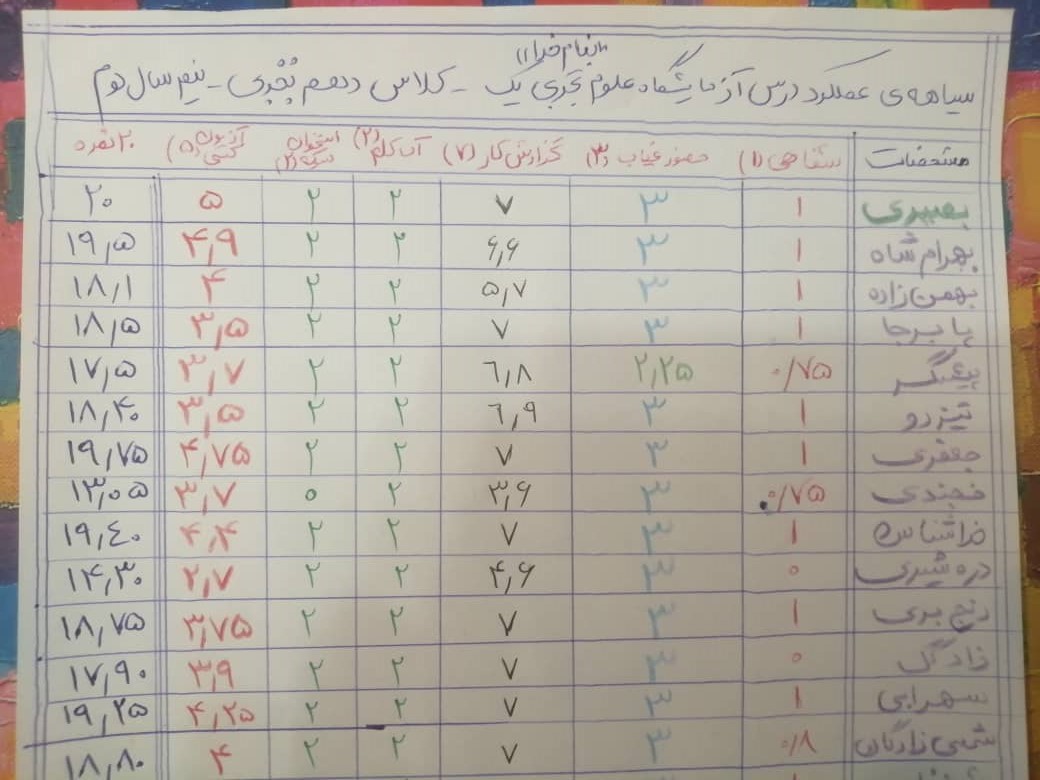 "بنام خدا"
سیاهه‌ی عملکرد درس آزمایشگاه علوم تجربی یک - کلاس دهم تجربی - نیم سال دوم
مشخصات شفاهی (۱) حضور غیاب (۳) گزارش کار (۷) (۲) امتحان (۲) آزمون کتبی (۵) ۲۰ نمره
بصیری ۱ ۳ ۷ ۲ ۲ ۵ ۲۰
بهرام شاه ۱ ۳ ۶,۶ ۲ ۲ ۴,۹ ۱۹,۵
بهمن زاده ۱ ۳ ۵,۷ ۲ ۲ ۴ ۱۸,۱
پابرجا ۱ ۳ ۷ ۲ ۲ ۳,۵ ۱۸,۵
پیشگر ۰/۷۵ ۲,۲۵ ۶,۸ ۲ ۲ ۳,۷ ۱۷,۵
تیزرو ۱ ۳ ۶,۹ ۲ ۲ ۳,۵ ۱۸,۴۰
جعفری ۱ ۳ ۷ ۲ ۲ ۴,۷۵ ۱۹,۷۵
خجندی ۰/۷۵ ۳ ۳,۶ ۲ ۰ ۳,۷ ۱۳,۰۵
خداشناس ۱ ۳ ۷ ۲ ۲ ۴,۴ ۱۹,۴۰
دره شیری ۰ ۳ ۴,۶ ۲ ۲ ۲,۷ ۱۴,۳۰
رنج بری ۱ ۳ ۷ ۲ ۲ ۳,۷۵ ۱۸,۷۵
زادگ ۰ ۳ ۷ ۲ ۲ ۳,۹ ۱۷,۹۰
سهرابی ۱ ۳ ۷ ۲ ۲ ۴,۲۵ ۱۹,۲۵
شمس زادگان ۰/۸ ۳ ۷ ۲ ۲ ۴ ۱۸,۸۰